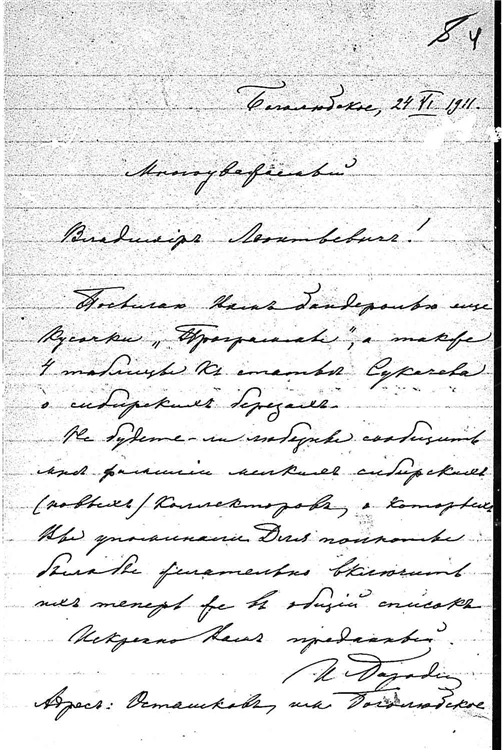 84
Боголюбское, 24 VI 1911.
Многоуважаемый
Владиміръ Леонтьевичъ!
Посылаю Вамъ бандеролью еще
кусочки „Программы", а также
4 таблицы къ статьѣ Сукачева
о сибирскихъ березахъ.
Не будете-ли любезны сообщить
мнѣ фамиліи мелкихъ сибирскихъ
(новыхъ) коллекторовъ, о которыхъ
Вы упоминали. Для полноты
было бы желательно включить
ихъ теперь же въ общій списокъ
Искренно Вамъ преданный.
И Бородин
Адресъ: Осташковъ, им. Боголюбское